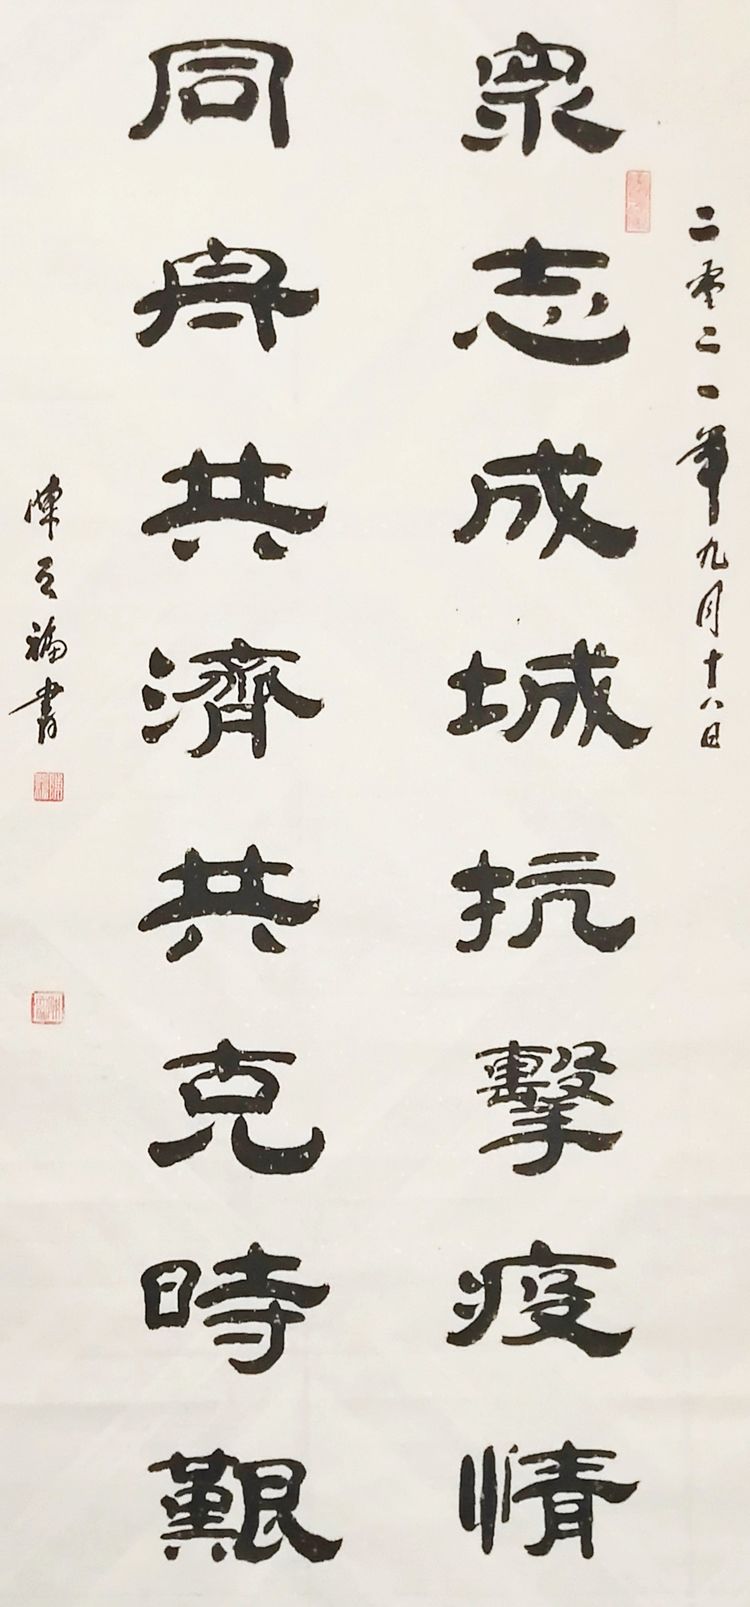 二零二一年九月十八日
眾志成城抗擊疫情
同舟共濟共克時艱
陳立福書